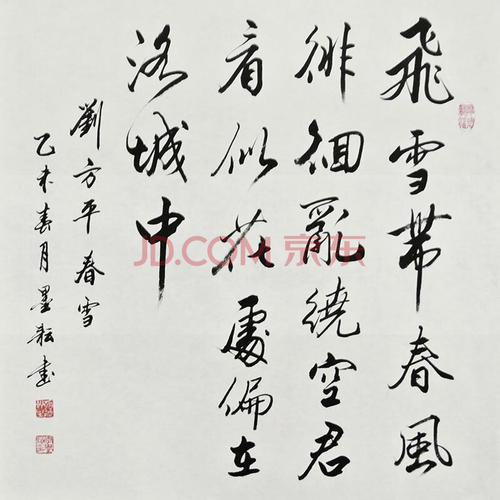 飛雪帶春風
徘徊亂繞空君
看似花處偏在
洛城中
劉方平春雪
乙未春月墨耘書
JD.COM 京东